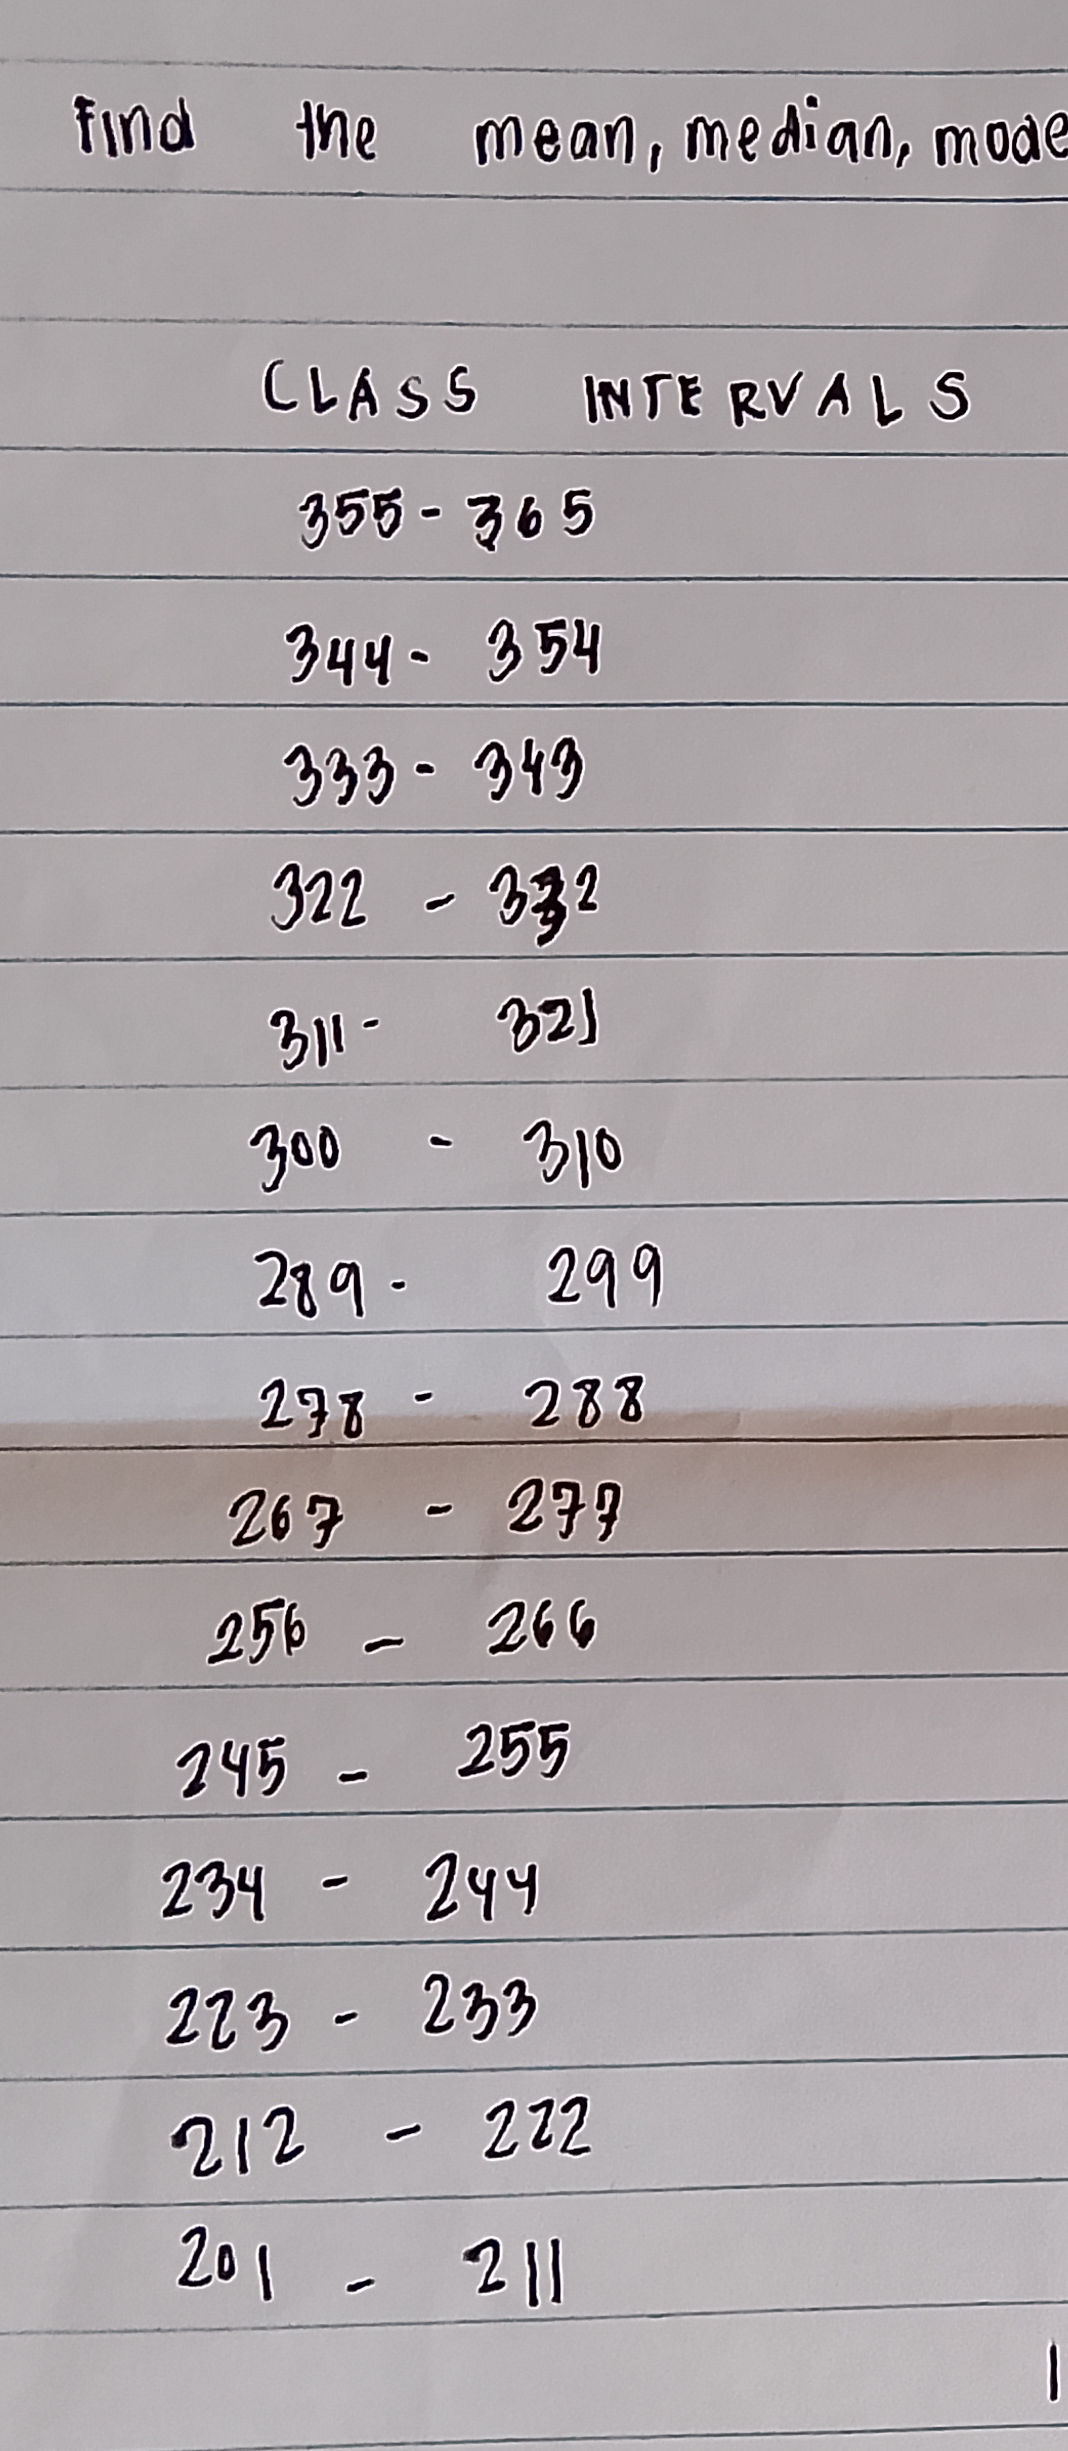 Find the mean, median, mode
CLASS INTERVALS
355 - 365
344 - 354
333 - 343
322 - 332
311 - 321
300 - 310
289 - 299
278 - 288
267 - 277
256 - 266
245 - 255
234 - 244
223 - 233
212 - 222
201 - 211